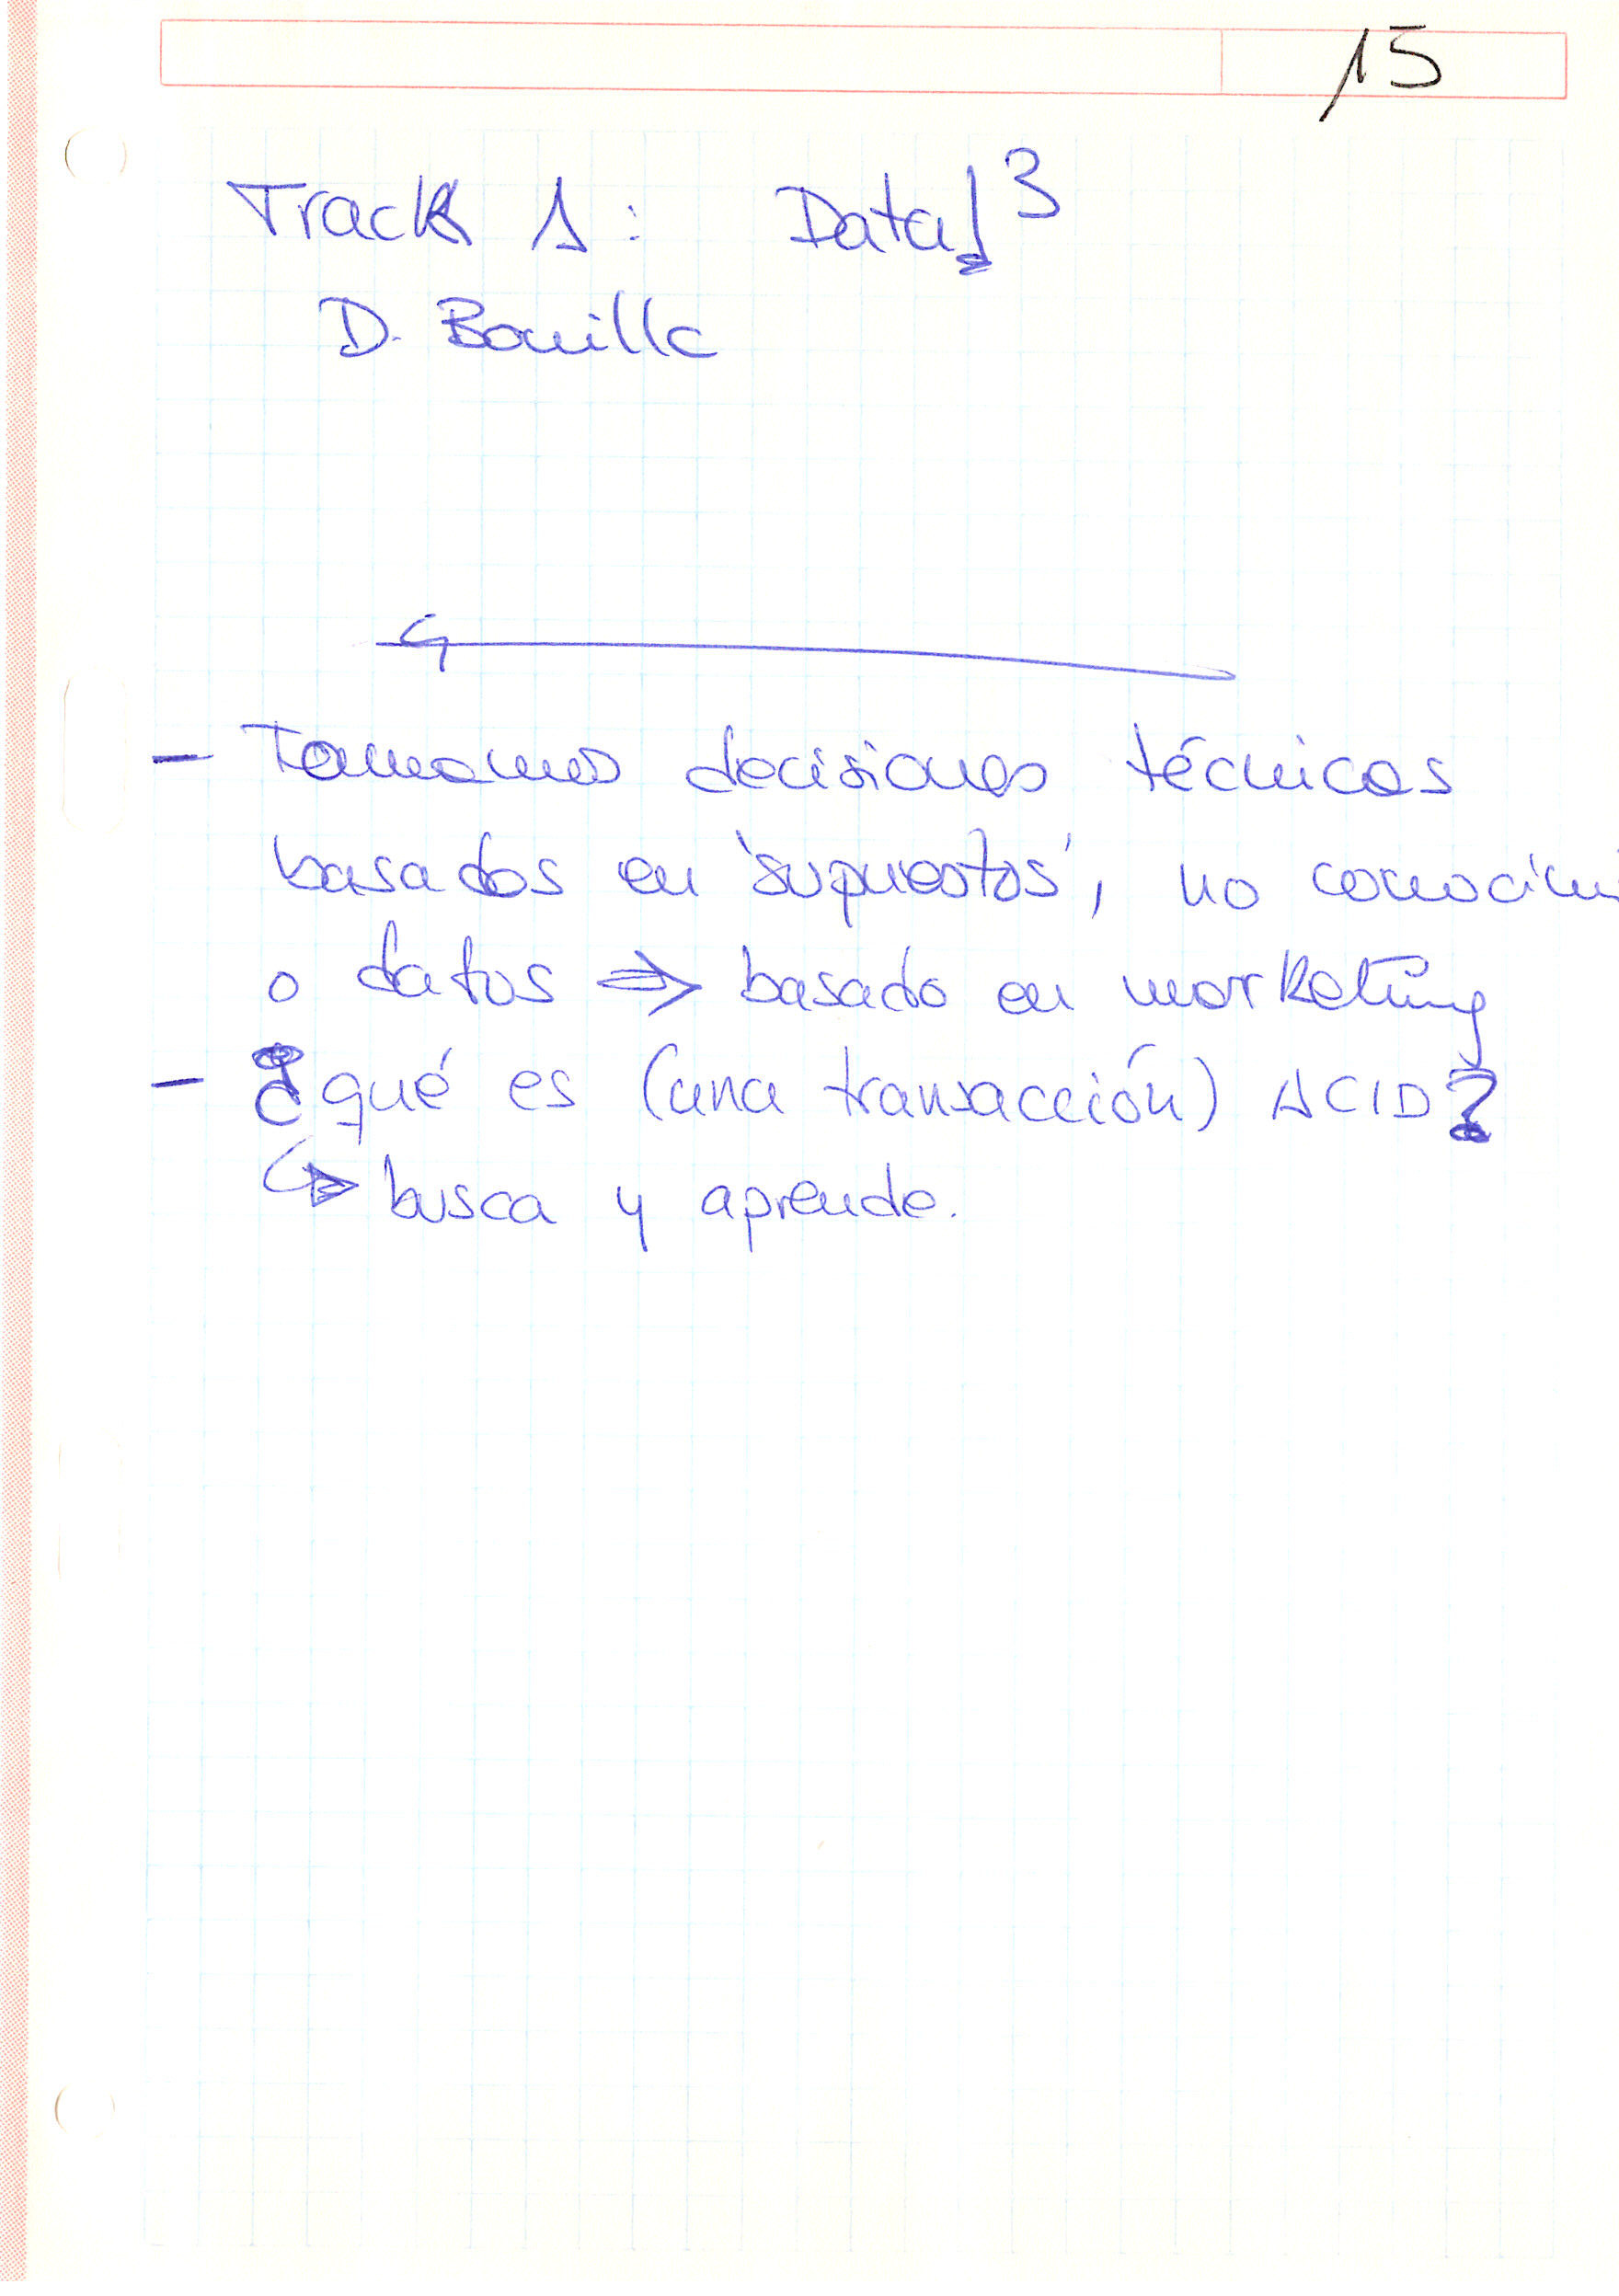 15
Track 1: Data!³
D. Bonilla
- Tomamos decisiones técnicas
basados en 'supuestos', no conocimi
o datos ⇒ basado en marketing
- ¿qué es (una transacción) ACID?
↳ busca y aprende.